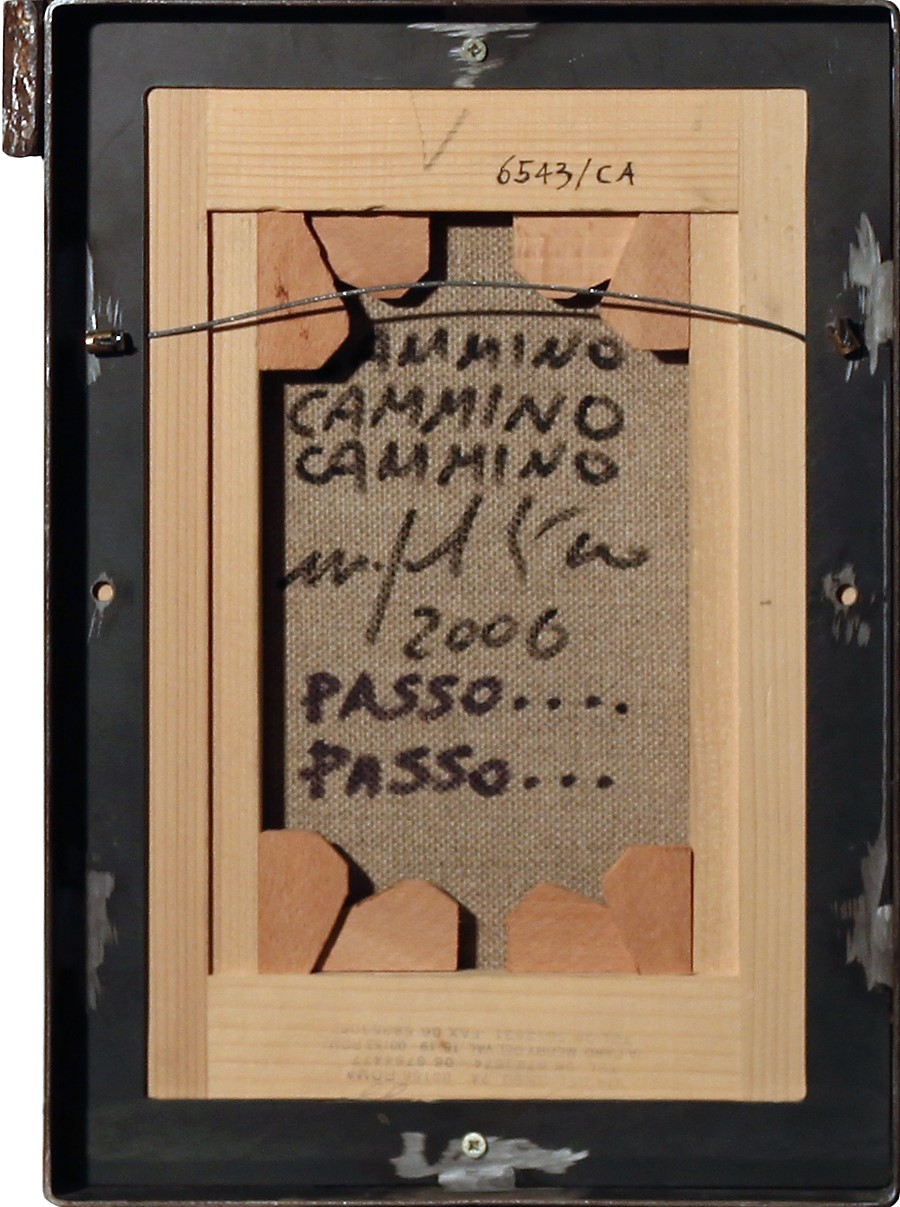 6543/CA
CAMMINO
CAMMINO
CAMMINO
2006
PASSO.....
PASSO...